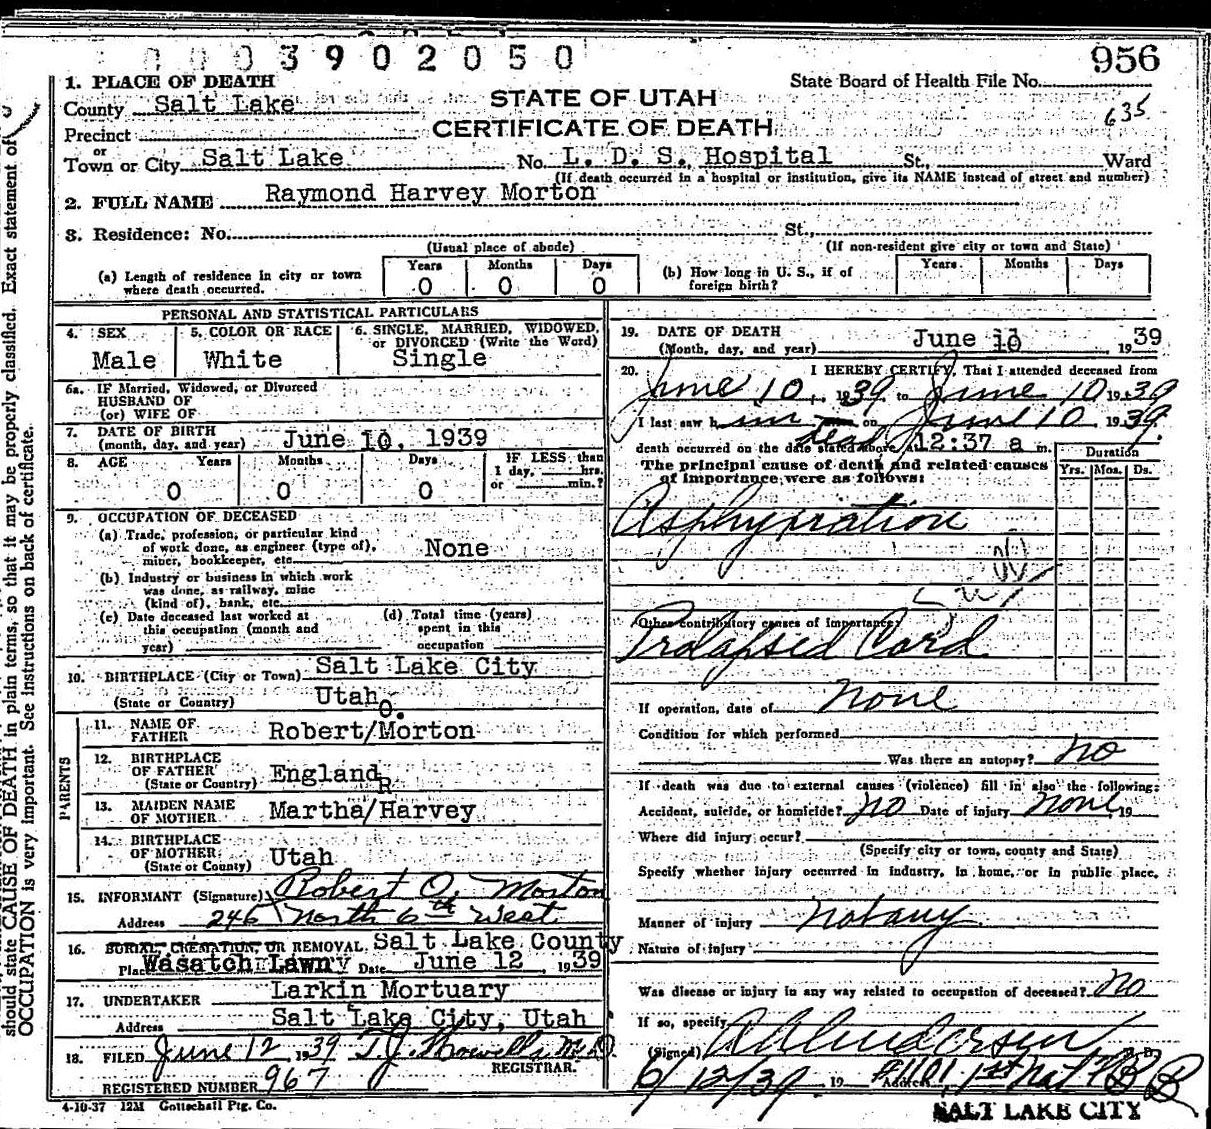 0003902050
956
1. PLACE OF DEATH
State Board of Health File No.
County Salt Lake
STATE OF UTAH
635
Precinct
CERTIFICATE OF DEATH
or
Town or City Salt Lake No. L. D. S. Hospital St., Ward
(If death occurred in a hospital or institution, give its NAME instead of street and number)
2. FULL NAME Raymond Harvey Morton
3. Residence: No. St.,
(Usual place of abode) (If non-resident give city or town and State)
(a) Length of residence in city or town where death occurred. Years 0 Months 0 Days 0
(b) How long in U. S., if of foreign birth? Years Months Days
PERSONAL AND STATISTICAL PARTICULARS
4. SEX Male
5. COLOR OR RACE White
6. SINGLE, MARRIED, WIDOWED, or DIVORCED (Write the Word) Single
6a. IF Married, Widowed, or Divorced
HUSBAND OF
(or) WIFE OF
7. DATE OF BIRTH
(month, day, and year) June 10, 1939
8. AGE Years 0 Months 0 Days 0
IF LESS than
1 day, hrs.
or min.?
9. OCCUPATION OF DECEASED
(a) Trade, profession, or particular kind
of work done, as engineer (type of),
miner, bookkeeper, etc. None
(b) Industry or business in which work
was done, as railway, mine
(kind of), bank, etc.
(c) Date deceased last worked at
this occupation (month and
year)
(d) Total time (years)
spent in this
occupation
10. BIRTHPLACE (City or Town) Salt Lake City
(State or Country) Utah
PARENTS
11. NAME OF FATHER Robert/O. Morton
12. BIRTHPLACE
OF FATHER
(State or Country) England
13. MAIDEN NAME
OF MOTHER Martha/R Harvey
14. BIRTHPLACE
OF MOTHER
(State or Country) Utah
15. INFORMANT (Signature) Robert O. Morton
Address 246 North 6th West
16. BURIAL, CREMATION, OR REMOVAL Salt Lake County
Place Wasatch Lawn Date June 12, 1939
17. UNDERTAKER Larkin Mortuary
Address Salt Lake City, Utah
18. FILED June 12 1939 T.J. Howells M.D.
REGISTRAR.
REGISTERED NUMBER 967
4-10-37 12M Gottschall Ptg. Co.
19. DATE OF DEATH
(Month, day, and year) June 10, 1939
20. I HEREBY CERTIFY, That I attended deceased from
June 10, 1939 to June 10 1939
I last saw him dead on June 10 1939.
death occurred on the date stated above, at 12:37 a m.
The principal cause of death and related causes
of importance were as follows:
Duration
Yrs. Mos. Ds.
Asphyxiation
Other contributory causes of importance:
Prolapsed Cord
If operation, date of none
Condition for which performed
Was there an autopsy? no
If death was due to external causes (violence) fill in also the following:
Accident, suicide, or homicide? no Date of injury none 19
Where did injury occur?
(Specify city or town, county and State)
Specify whether injury occurred in industry, in home, or in public place.
Manner of injury not any
Nature of injury
Was disease or injury in any way related to occupation of deceased? no
If so, specify
(Signed)
6/12/39 19 Address #1101 1st Nat'l
SALT LAKE CITY
should state CAUSE OF DEATH in plain terms, so that it may be properly classified. Exact statement of
OCCUPATION is very important. See instructions on back of certificate.